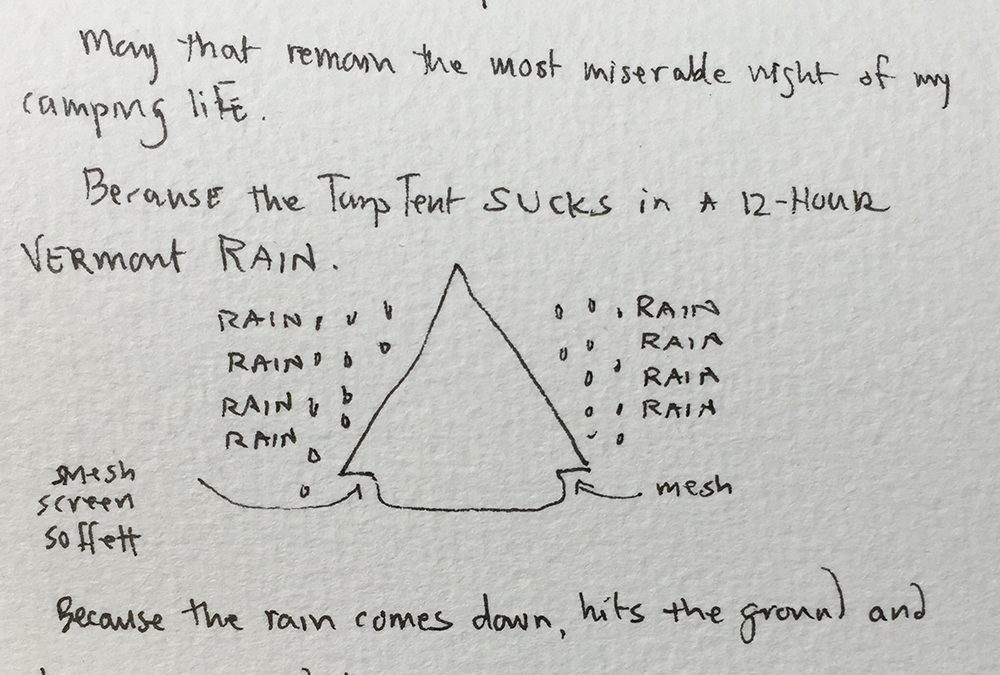 May that remain the most miserable night of my
camping life.
Because the Tarp Tent SUCKS in A 12-Hour
VERmont RAIN.
RAIN RAIN
RAIN RAIN
RAIN RAIN
RAIN RAIN
smesh
screen
soffett
mesh
Because the rain comes down, hits the ground and